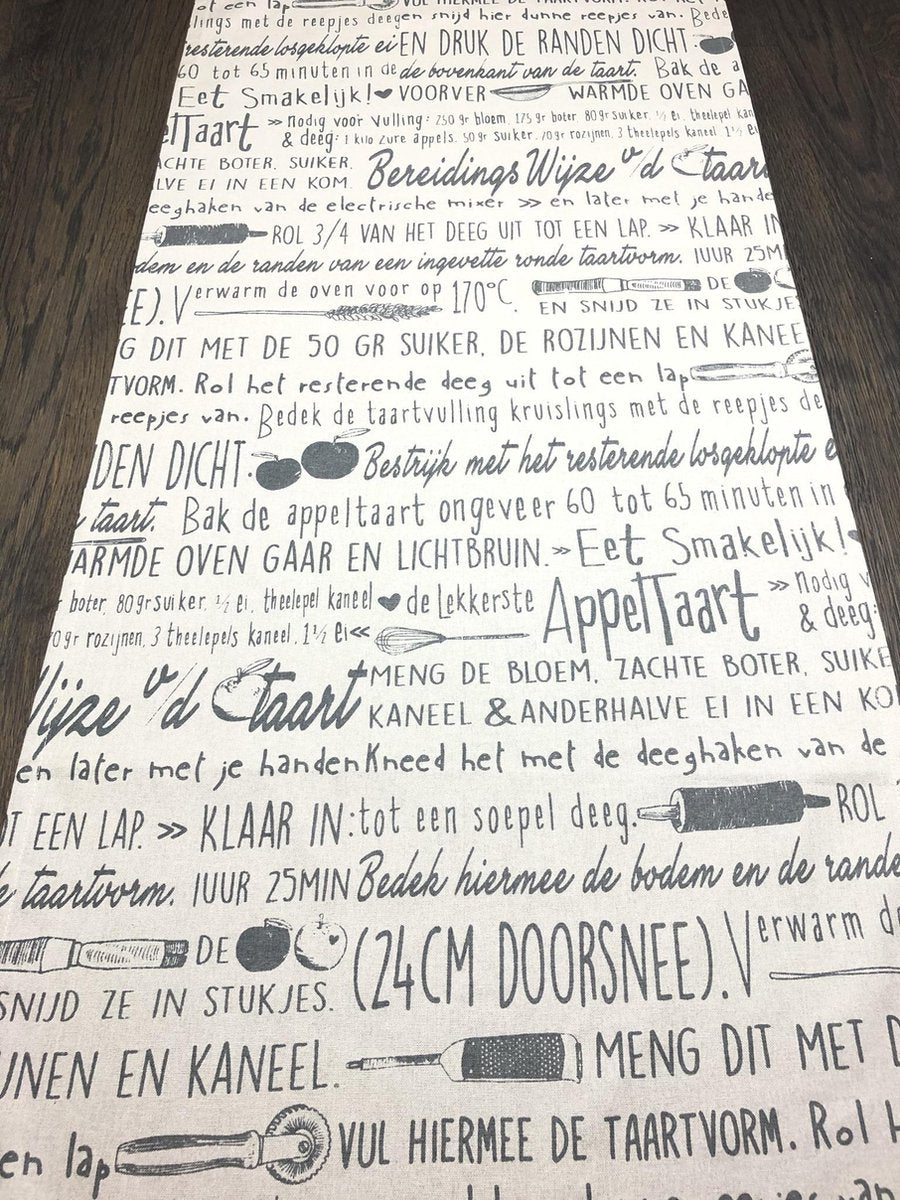 ot een lap VUL HIERMEE DE TAARTVORM. ROL HET
slings met de reepjes deegen snijd hier dunne reepjes van. Bede
resterende losgeklopte ei EN DRUK DE RANDEN DICHT.
60 tot 65 minuten in de de bovenkant van de taart. Bak de a
Eet Smakelijk! VOORVER WARMDE OVEN GA
elTaart >> nodig voor vulling: 250 gr bloem, 175 gr boter, 80gr suiker, ½ ei, theelepel kan
& deeg: 1 kilo zure appels, 50 gr suiker, 70gr rozijnen, 3 theelepels kaneel, 1½ ei
ACHTE BOTER, SUIKER, Bereidings Wijze v/d taart
LVE EI IN EEN KOM.
eeghaken van de electrische mixer >> en later met je hande
ROL 3/4 VAN HET DEEG UIT TOT EEN LAP. >> KLAAR IN
dem en de randen van een ingevette ronde taartvorm. 1UUR 25M
EE). Verwarm de oven voor op 170°C. DE
EN SNIJD ZE IN STUKJE
G DIT MET DE 50 GR SUIKER, DE ROZIJNEN EN KANEE
TVORM. Rol het resterende deeg uit tot een lap
reepjes van. Bedek de taartvulling kruislings met de reepjes de
DEN DICHT. Bestrijk met het resterende losgeklopte e
taart. Bak de appeltaart ongeveer 60 tot 65 minuten in
ARMDE OVEN GAAR EN LICHTBRUIN. >> Eet Smakelijk!
r boter, 80gr suiker, ½ ei, theelepel kaneel de Lekkerste AppelTaart >> nodig v
70gr rozijnen, 3 theelepels kaneel, 1½ ei << & deeg:
Wijze v/d taart MENG DE BLOEM, ZACHTE BOTER, SUIKE
KANEEL & ANDERHALVE EI IN EEN KO
en later met je handen Kneed het met de deeghaken van de
OT EEN LAP. >> KLAAR IN: tot een soepel deeg. ROL
e taartvorm. 1UUR 25MIN Bedek hiermee de bodem en de rande
DE (24CM DOORSNEE). Verwarm de
SNIJD ZE IN STUKJES.
IJNEN EN KANEEL. MENG DIT MET D
en lap VUL HIERMEE DE TAARTVORM. Rol H